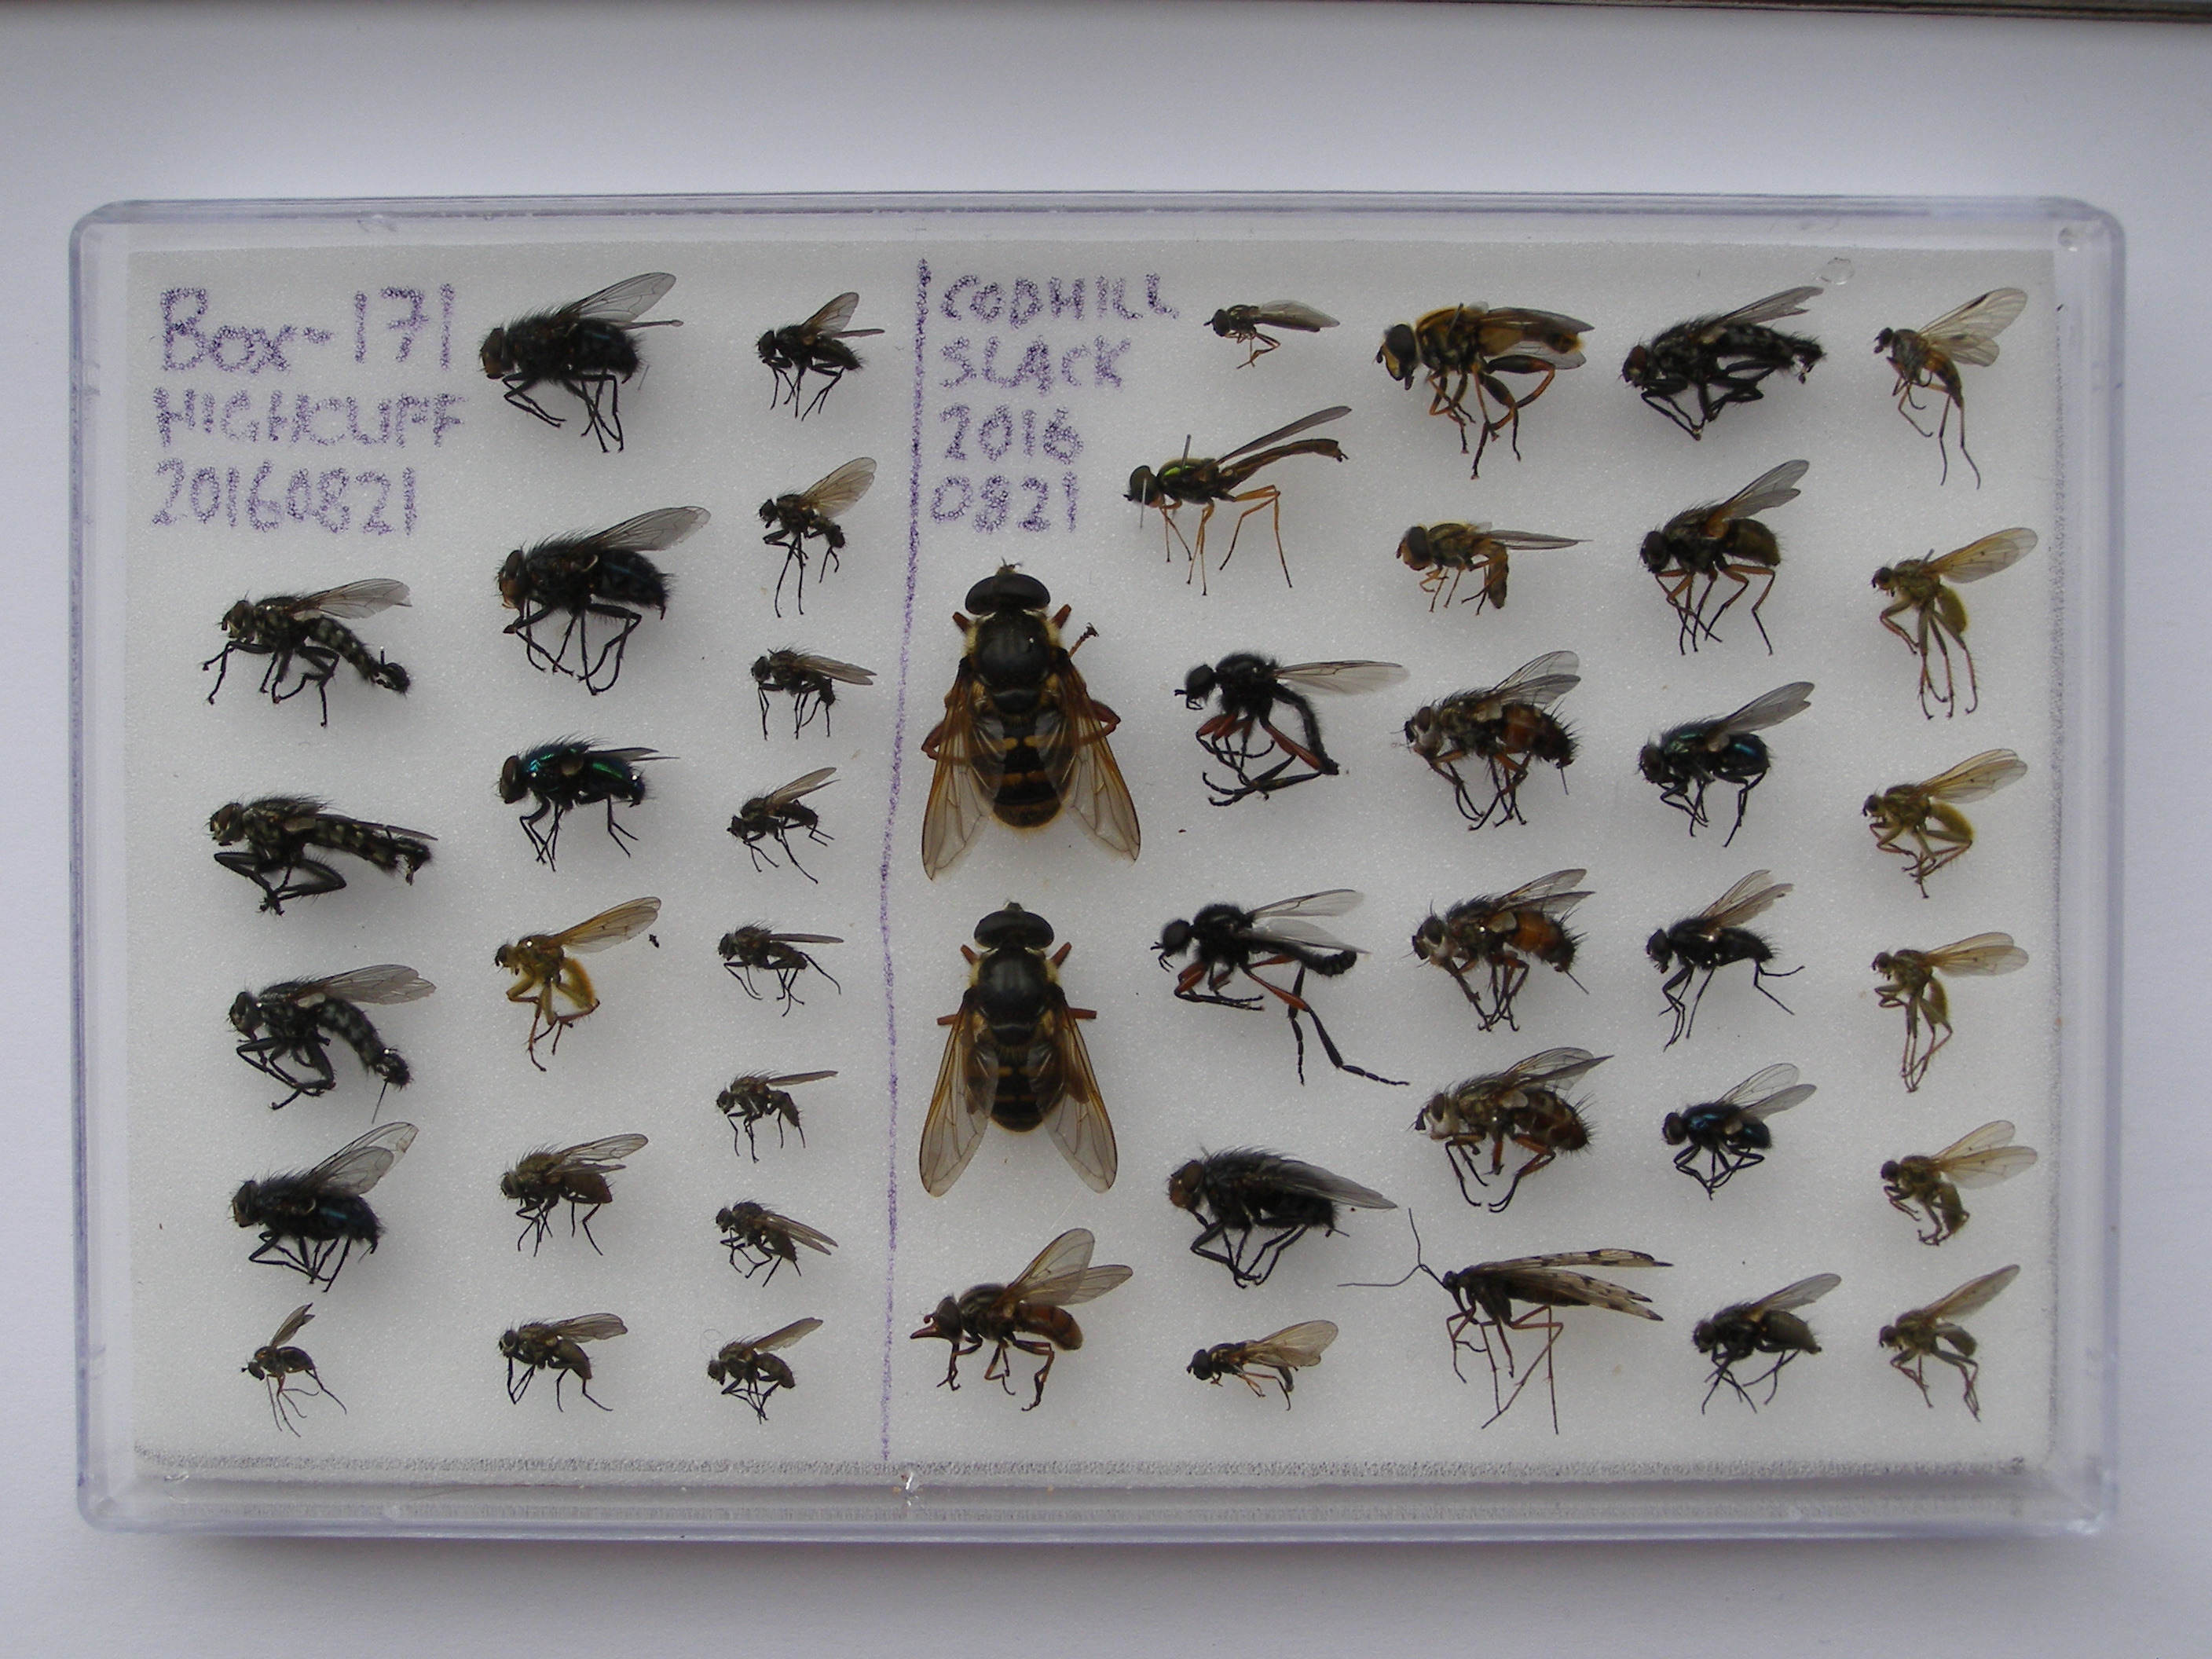 Box-171
HIGHCLIFF
20160821
CODHILL
SLACK
2016
0821